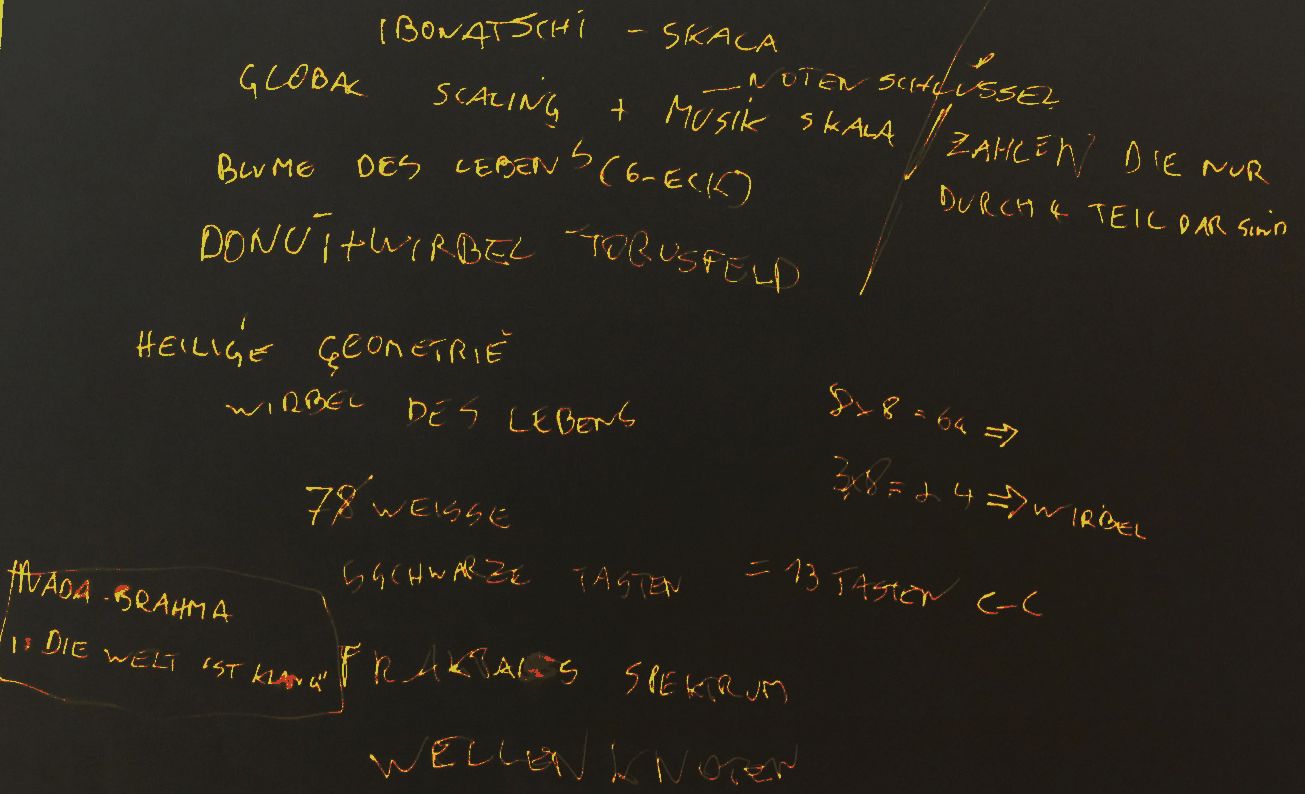 IBONATSCHI - SKALA
GLOBAL SCALING + MUSIK SKALA
NOTENSCHLÜSSEL
BLUME DES LEBENS (6-ECK)
ZAHLEN DIE NUR
DURCH 4 TEILDAR SIND
DONUT+WIRBEL TORUSFELD
HEILIGE GEOMETRIE
WIRBEL DES LEBENS
8x8=64 ⇒
3x8=24 ⇒ WIRBEL
78 WEISSE
5 SCHWARZE TASTEN = 13 TASTEN C-C
NADA-BRAHMA
DIE WELT IST KLANG"
FRAKTALES SPEKTRUM
WELLENKNOTEN